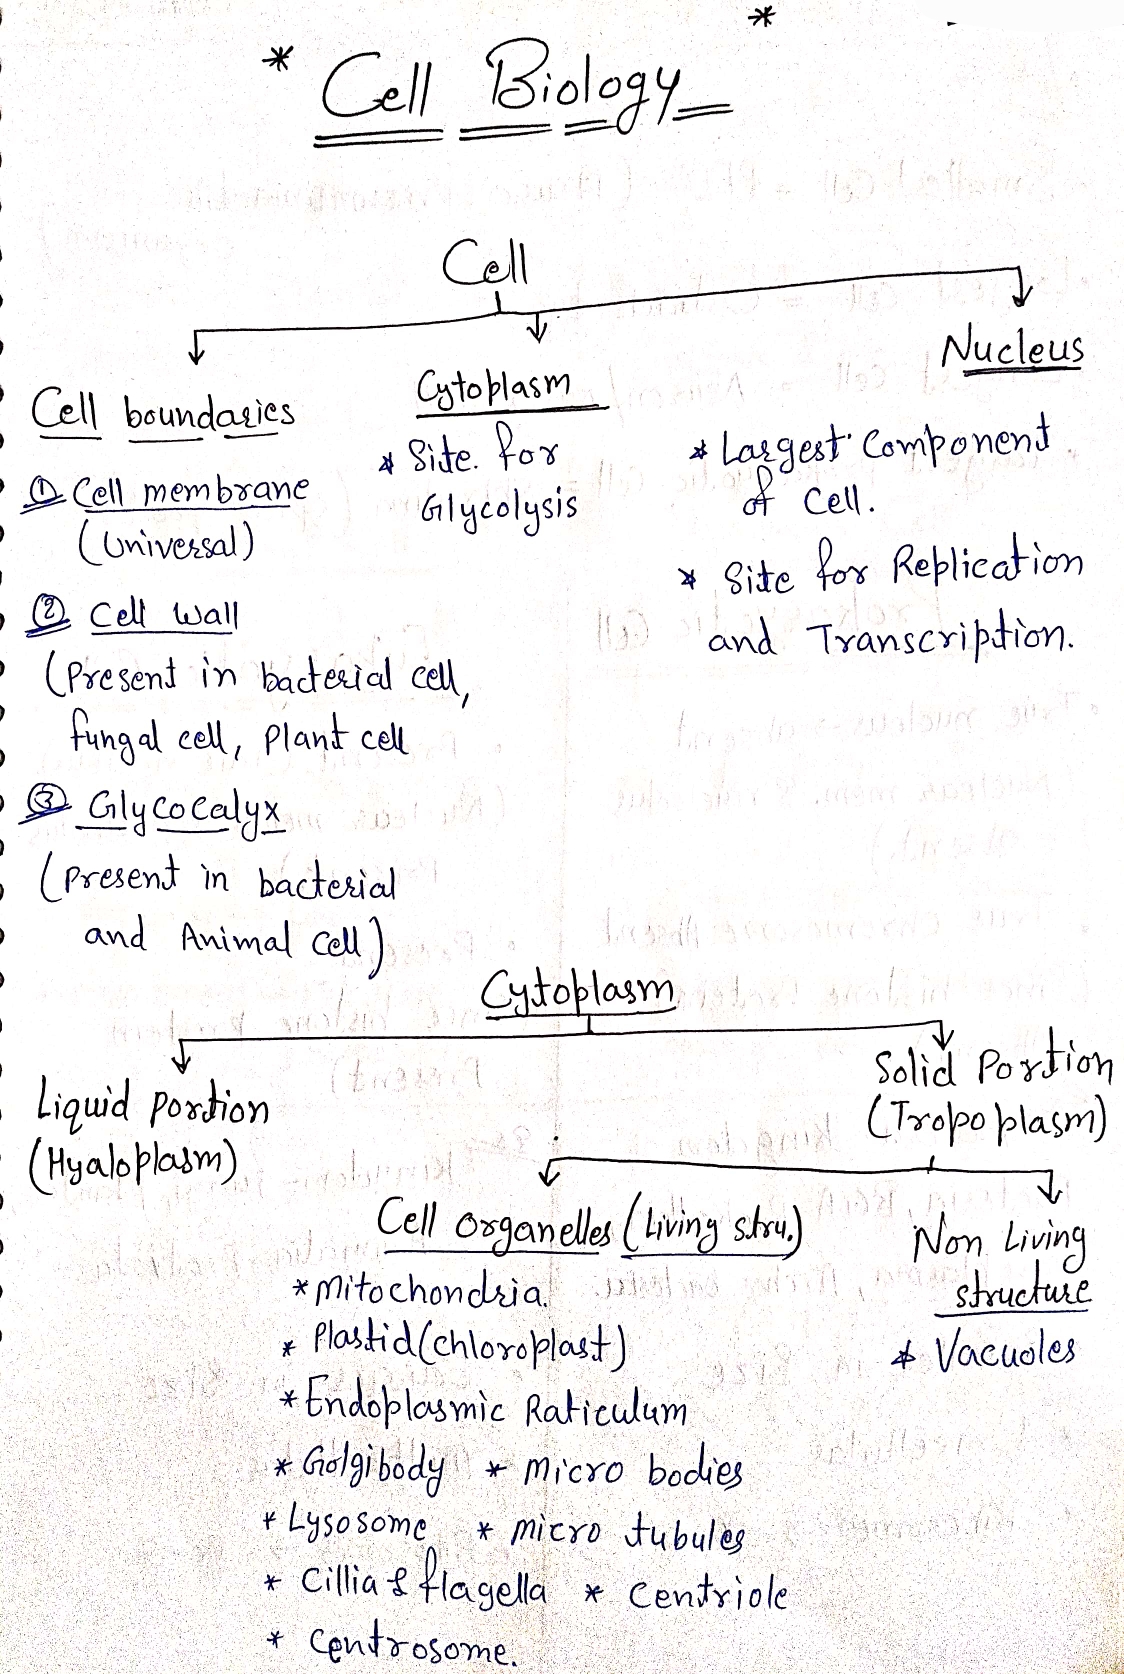 * Cell Biology *
Cell
Cell boundaries
① Cell membrane
(Universal)
② Cell Wall
(Present in bacterial cell,
fungal cell, Plant cell
③ Glycocalyx
(Present in bacterial
and Animal cell)
Cytoplasm
* Site for
Glycolysis
Nucleus
* Largest Component
of Cell.
* Site for Replication
and Transcription.
Cytoplasm
Liquid portion
(Hyaloplasm)
Solid Portion
(Tropoplasm)
Cell organelles (Living stru.)
* Mitochondria.
* Plastid (chloroplast)
* Endoplasmic Raticulum
* Golgibody * micro bodies
* Lysosome * micro tubules
* Cillia & flagella * Centriole
* Centrosome.
Non Living
structure
* Vacuoles